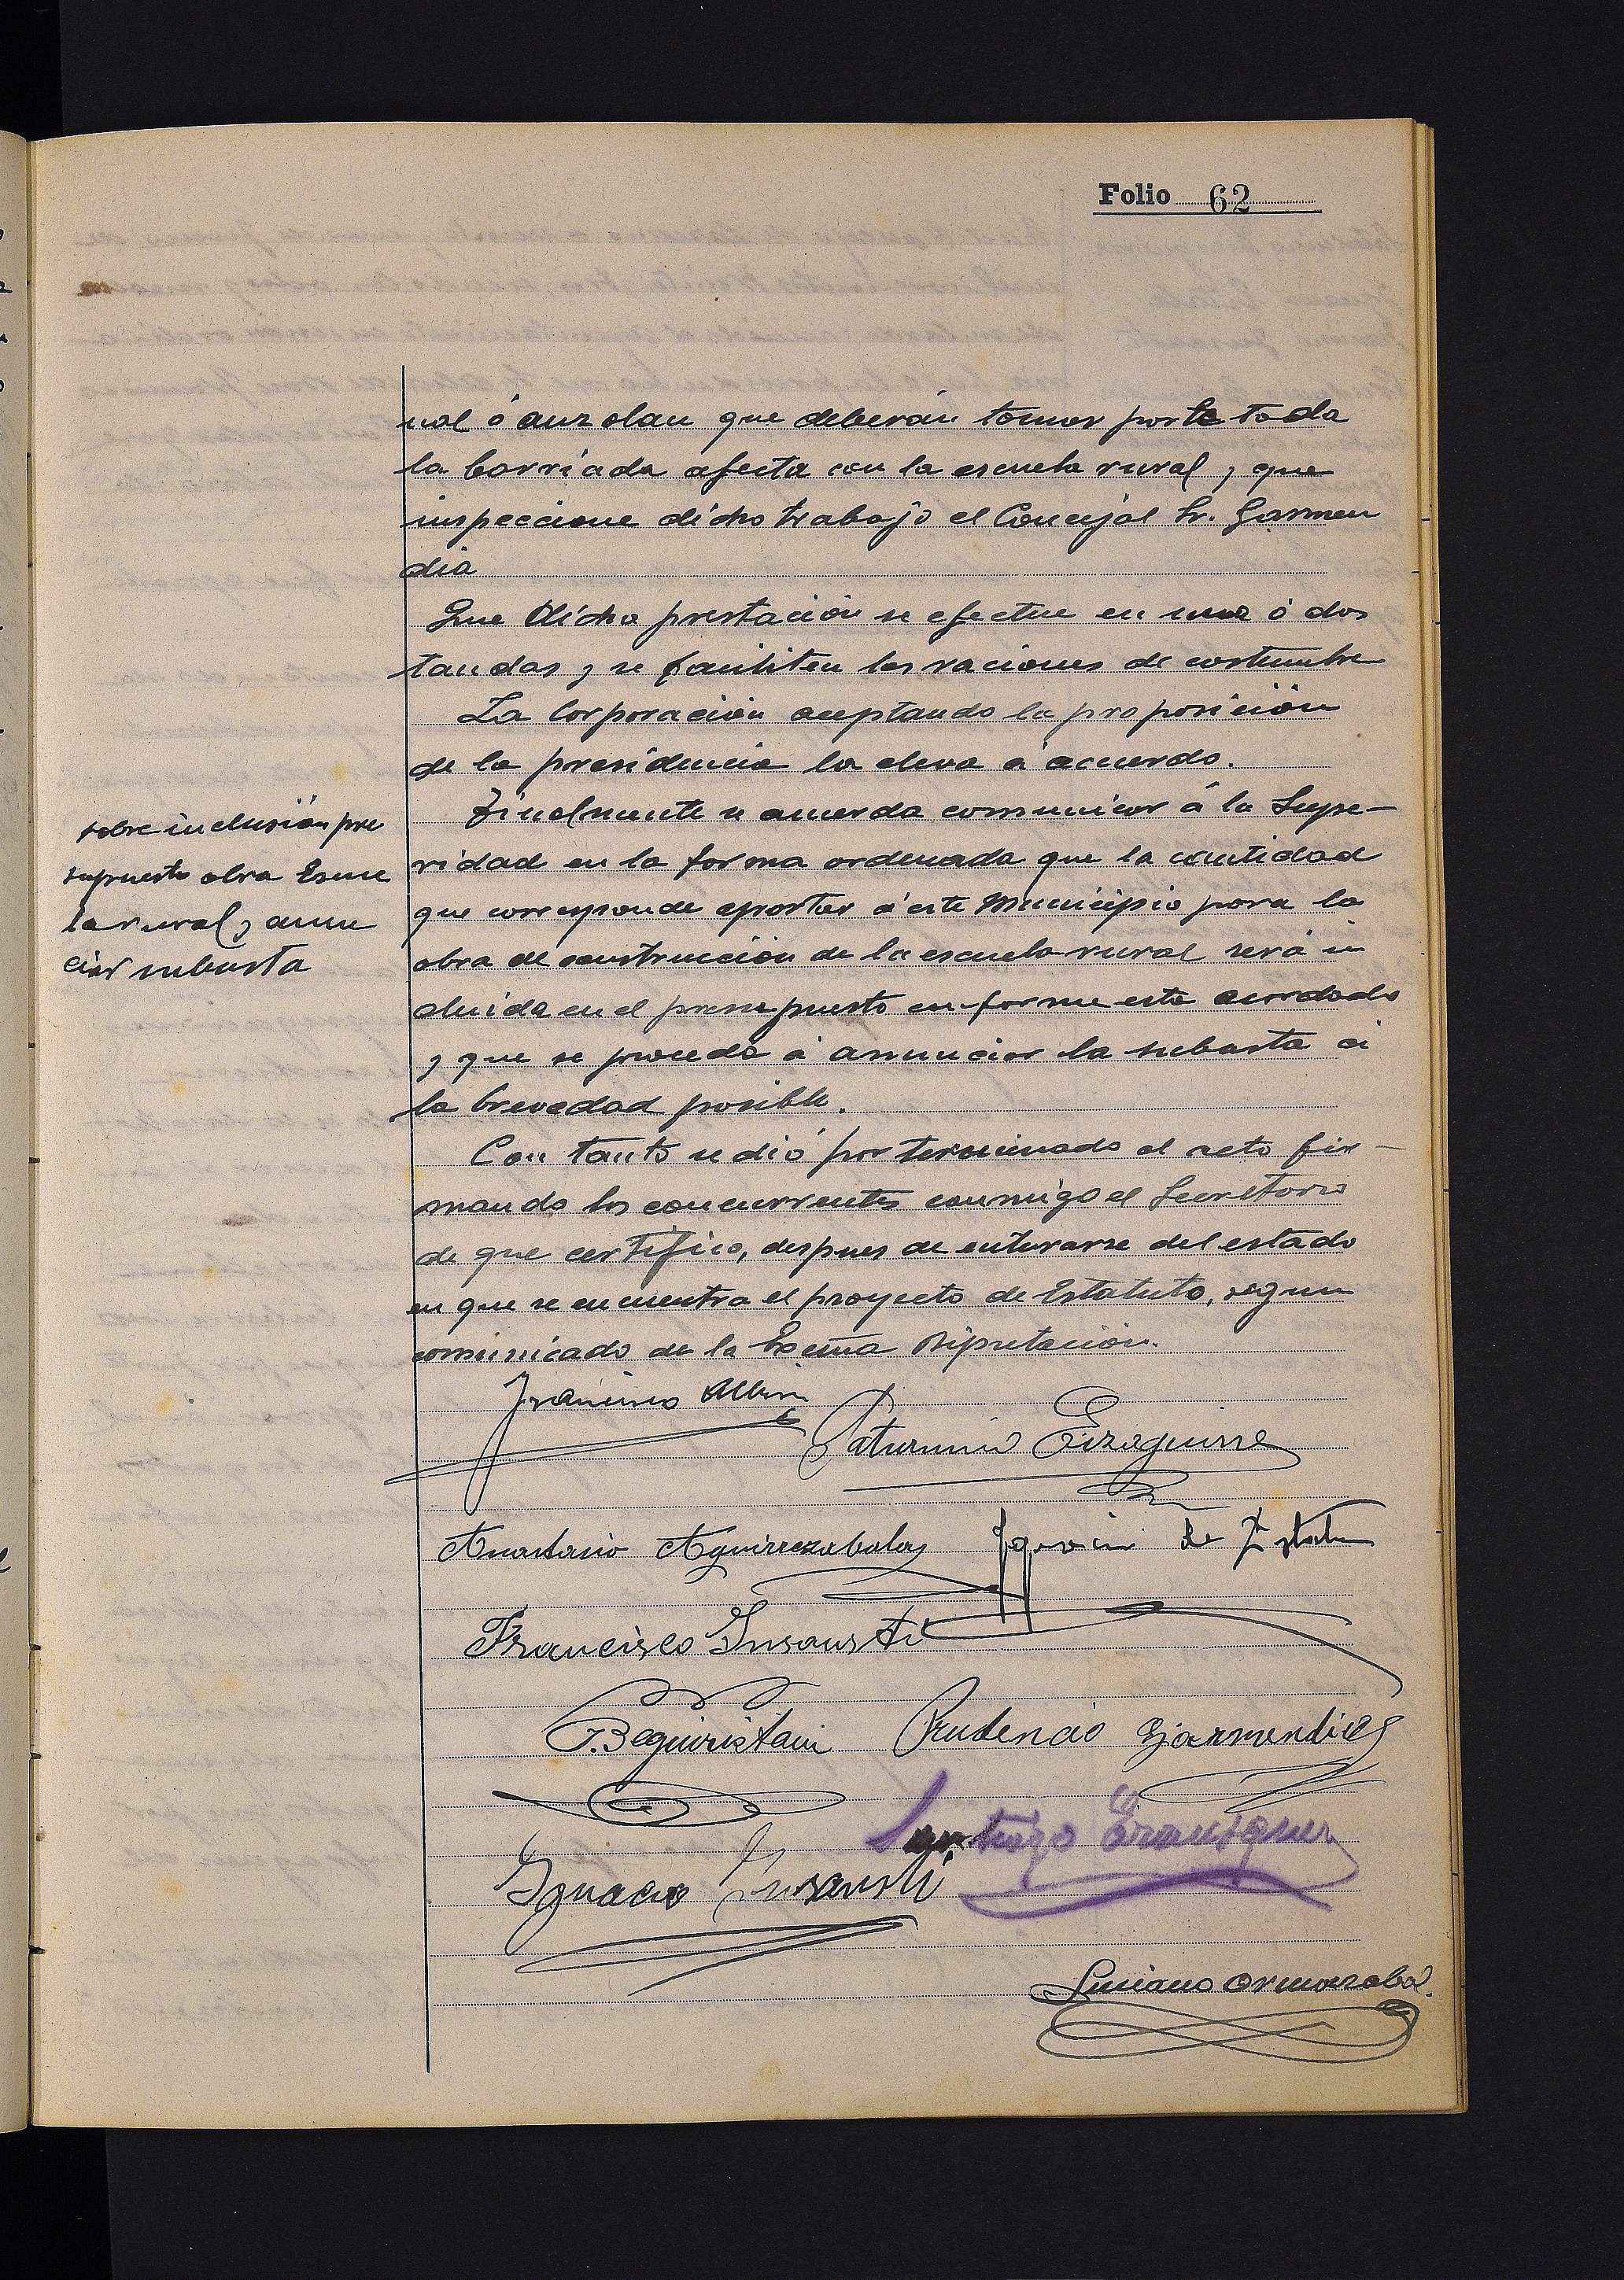 Folio 62
nal ó auzolan que deberán tomar parte toda
la barriada afecta con la escuela rural, y que
inspeccione dicho trabajo el Concejal Sr. Garmen
dia
Que dicha prestación se efectue en una ó dos
tandas y se faciliten las raciones de costumbre
La Corporación aceptando la proposición
de la presidencia la eleva á acuerdo.
sobre inclusión pre
supuesto obra Escue
la rural, y anun
ciar subasta
Finalmente se acuerda comunicar á la Supe-
ridad en la forma ordenada que la cantidad
que corresponde aportar á este Municipio para la
obra de construcción de la escuela rural será in
cluida en el presupuesto en forme esta acordado
y que se proceda á anunciar la subasta á
la brevedad posible.
Con tanto se dió por terminado el acto fir-
mando los concurrentes conmigo el Secretario
de que certifico, despues de enterarse del estado
en que se encuentra el proyecto de Estatuto, segun
comunicado de la Excma Diputación.
Francisco
Saturnino Eizaguirre
Anastasio Aguirrezabalag
Ignacio de
Francisco Insausti
J. Beguiristain Prudencio Garmendia
Santiago
Ignacio Insausti
Luciano Ormazabal